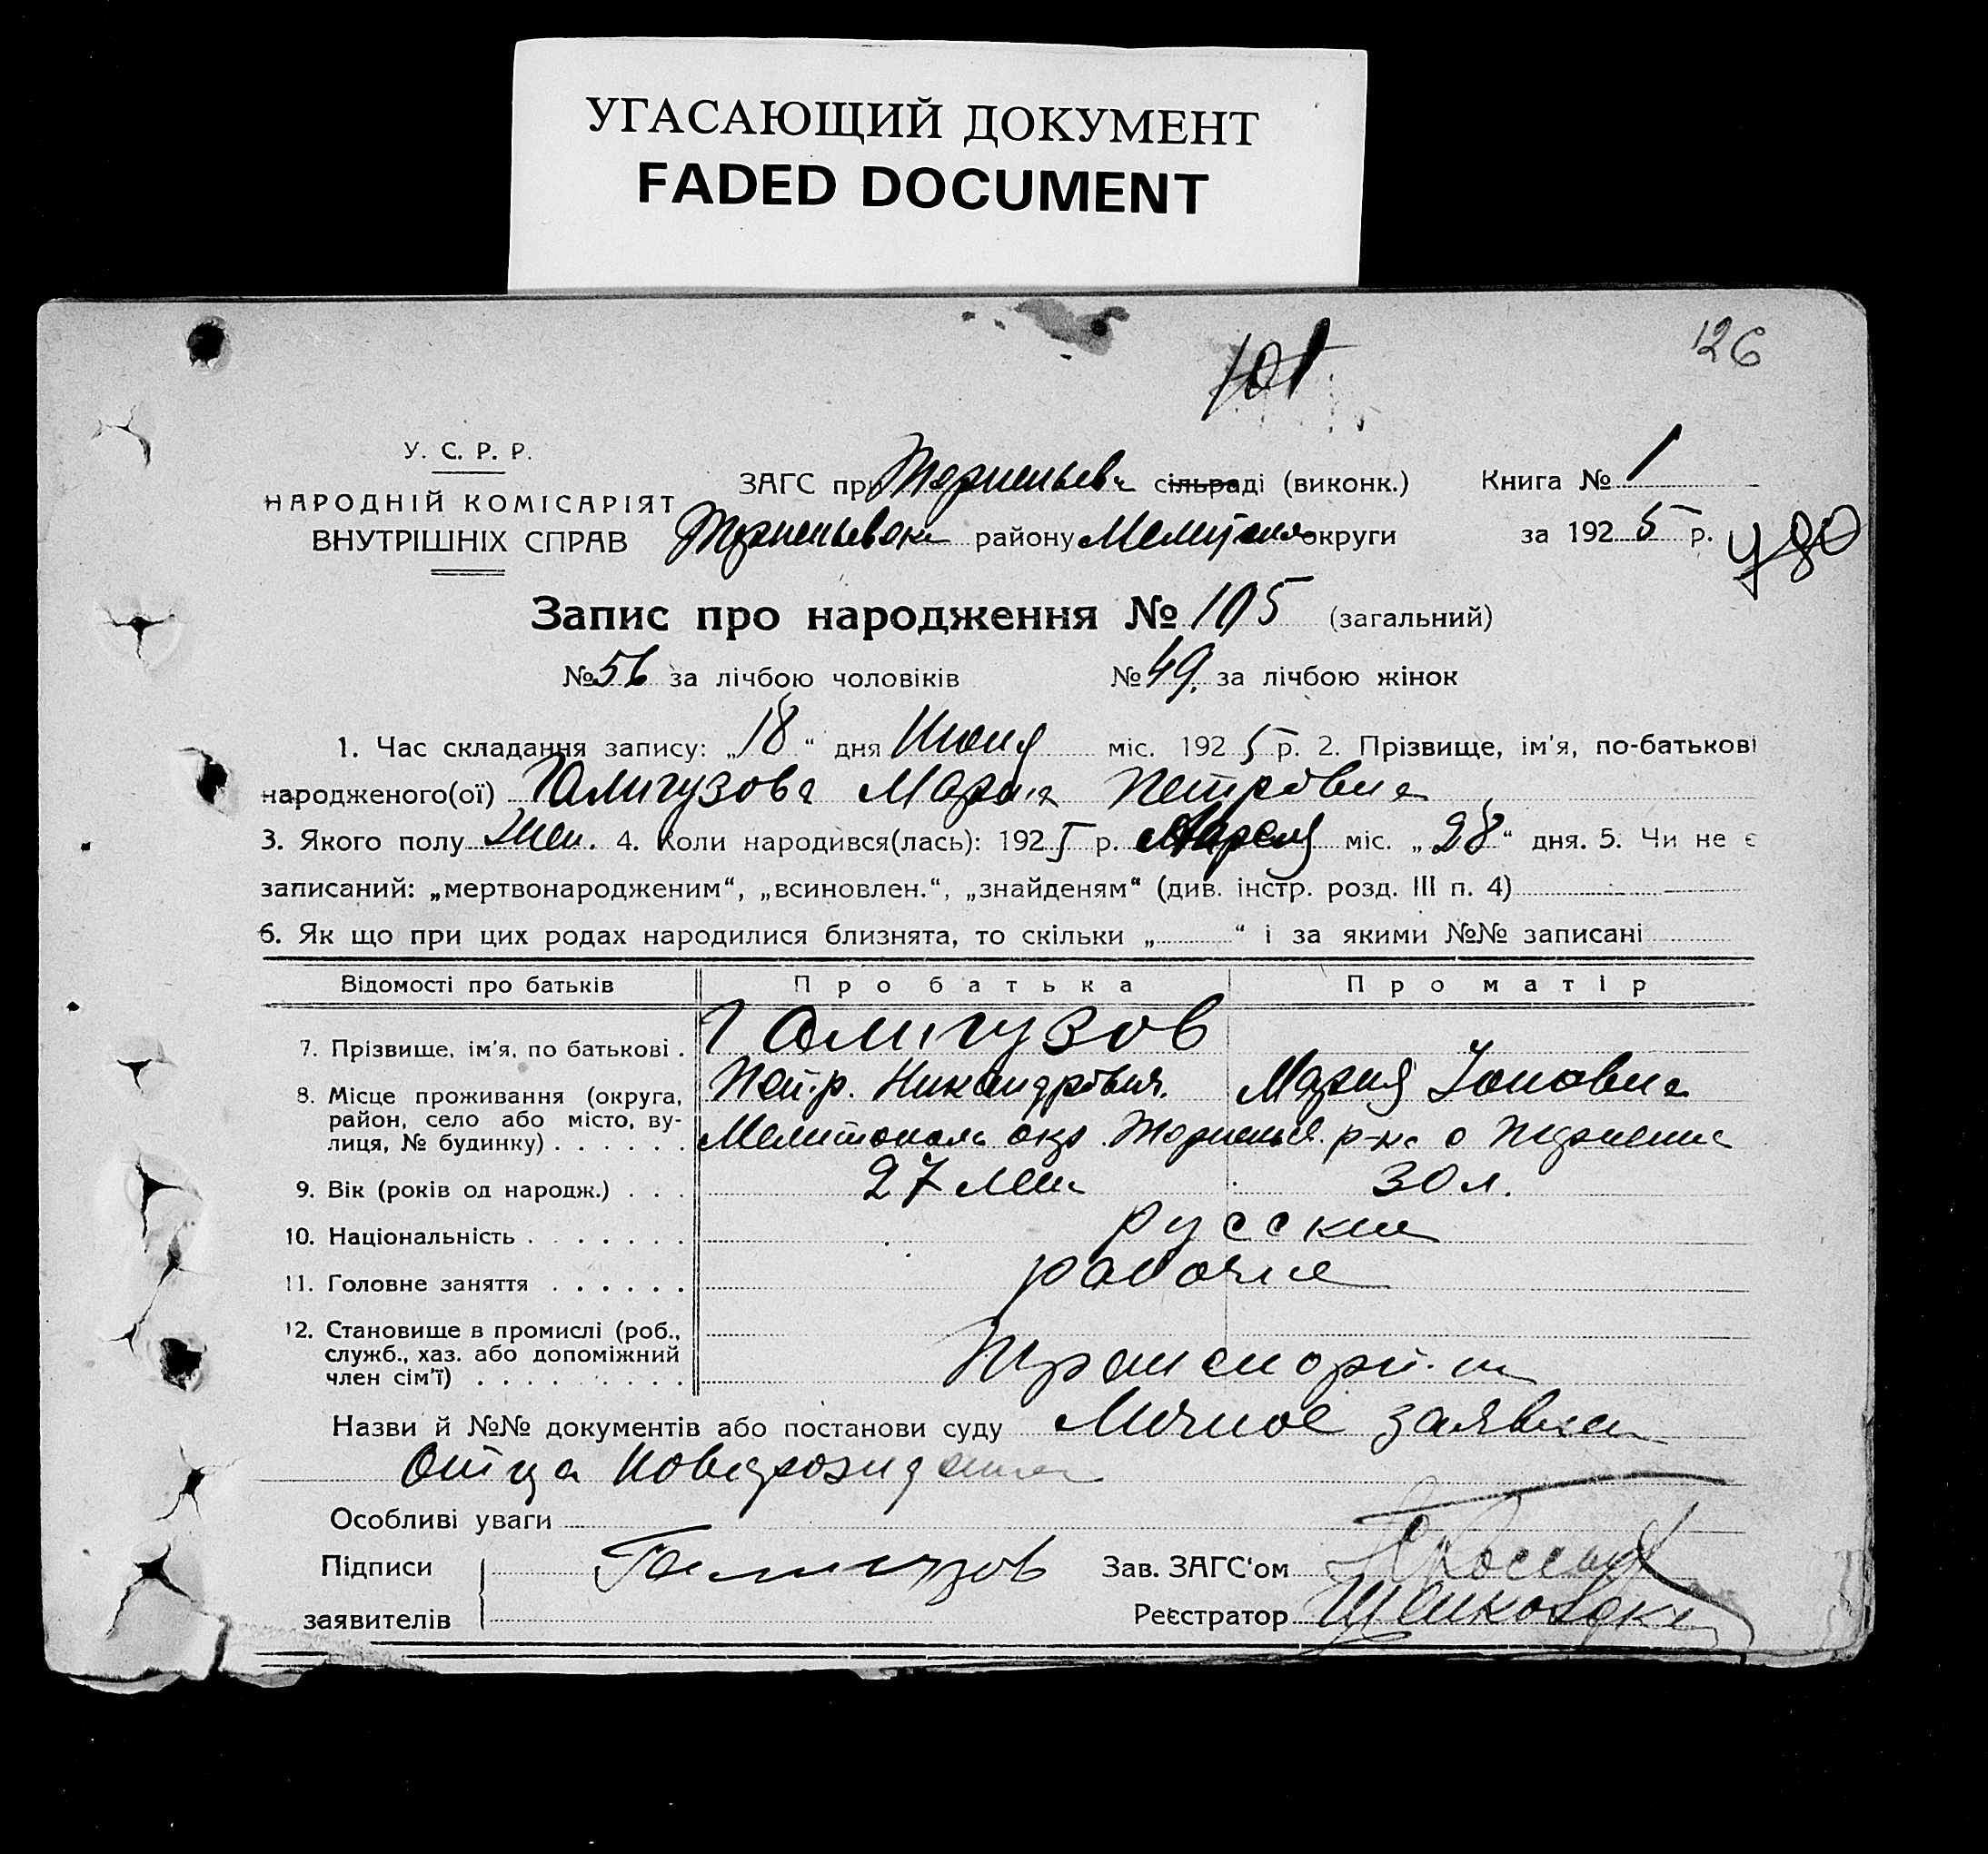 УГАСАЮЩИЙ ДОКУМЕНТ
FADED DOCUMENT
126
101
У. С. Р. Р.
НАРОДНІЙ КОМІСАРІЯТ
ВНУТРІШНІХ СПРАВ
ЗАГС при сільраді (виконк.)
району округи
Книга № 1
за 1925 р.
Запис про народження № 105 (загальний)
№ 56 за лічбою чоловіків № 49. за лічбою жінок
1. Час складання запису: „18“ дня Июня міс. 1925 р. 2. Прізвище, ім'я, по-батькові
народженого(ої) Галигузова Мария Петровна
3. Якого полу жен. 4. Коли народився(лась): 1925 р. Апреля міс. „28“ дня. 5. Чи не є
записаний: „мертвонародженим“, „всиновлен.“, „знайденям“ (див. інстр. розд. III п. 4)
6. Як що при цих родах народилися близнята, то скільки „ “ і за якими №№ записані
Відомості про батьків Про батька Про матір
7. Прізвище, ім'я, по батькові . Галигузов
Петр. Никандрович. Мария Ионовна
8. Місце проживання (округа,
район, село або місто, ву-
лиця, № будинку) . . . . . . Мелитопол окр р-на с
9. Вік (років од народж.) . . . 27 лет 30 л.
10. Національність . . . . . . . русские
11. Головне заняття . . . . . . рабочие
12. Становище в промислі (роб.,
служб., хаз. або допоміжний
член сім'ї) . . . . . . . . .
Назви й №№ документів або постанови суду Личное заявлен
Отца
Особливі уваги
Підписи Галигузов Зав. ЗАГС'ом
заявителів Реєстратор